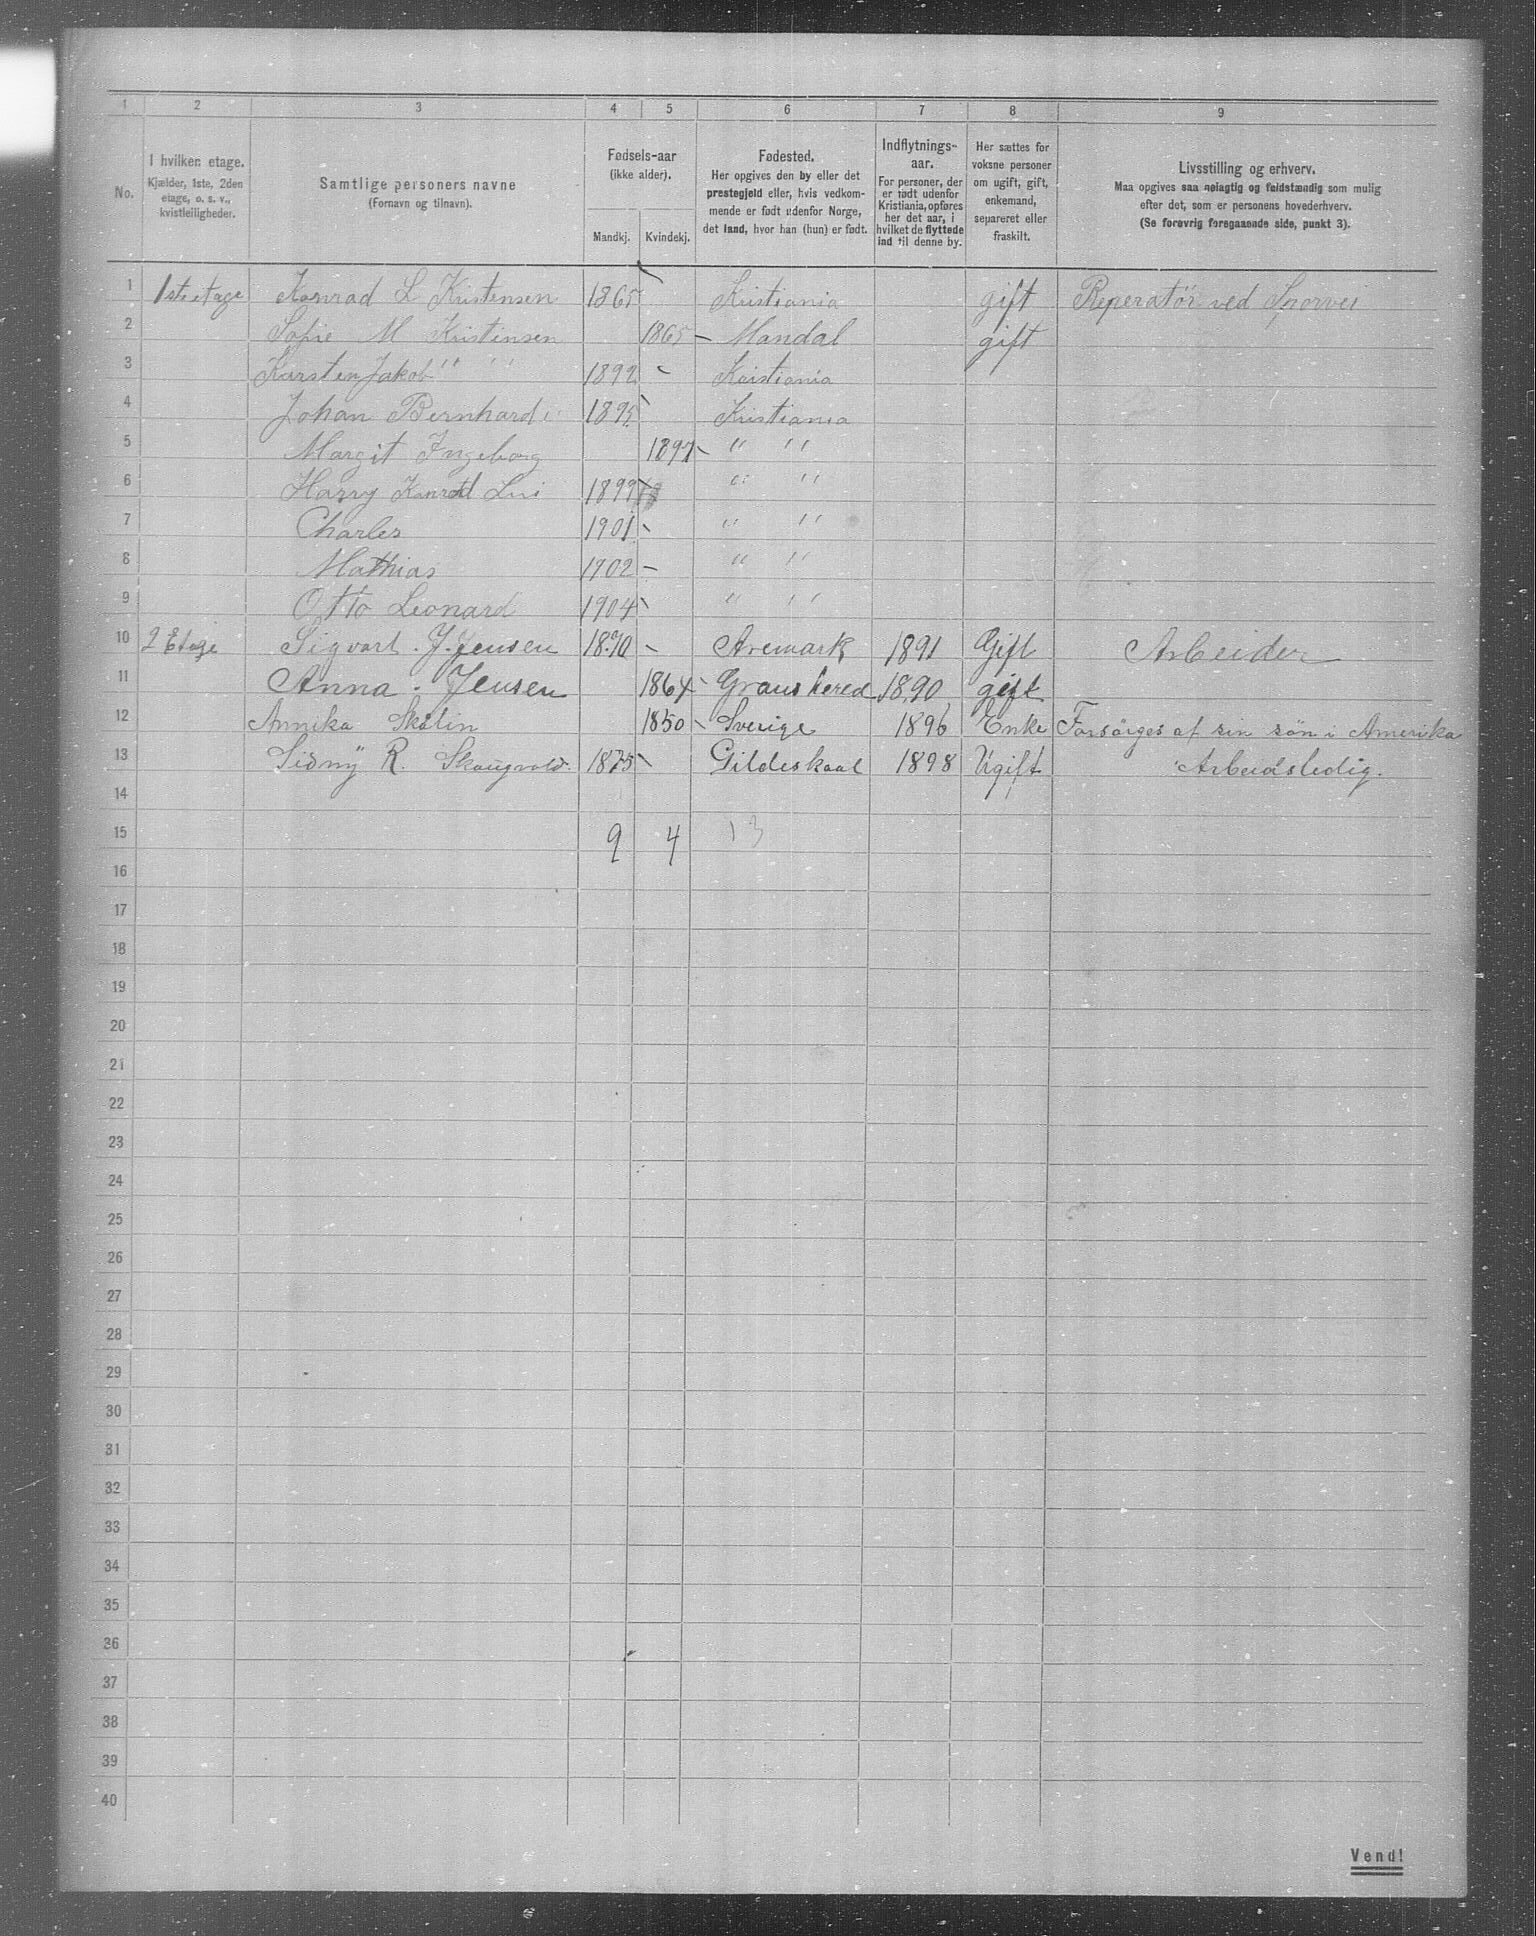 1 2 3 4 5 6 7 8 9
No.
I hvilken etage.
Kjælder, 1ste, 2den
etage, o. s. v.,
kvistleiligheder.
Samtlige personers navne
(Fornavn og tilnavn).
Fødsels-aar
(ikke alder).
Mandkj. Kvindekj.
Fødested.
Her opgives den by eller det
prestegjeld eller, hvis vedkom-
mende er født udenfor Norge,
det land, hvor han (hun) er født.
Indflytnings-
aar.
For personer, der
er født udenfor
Kristiania, opføres
her det aar, i
hvilket de flyttede
ind til denne by.
Her sættes for
voksne personer
om ugift, gift,
enkemand,
separeret eller
fraskilt.
Livsstilling og erhverv.
Maa opgives saa nøiagtig og fuldstændig som mulig
efter det, som er personens hovederhverv.
(Se forøvrig foregaaende side, punkt 3).
1 1ste etage Konrad L Kristensen 1865 Kristiania gift Reperatör ved Sporvei
2 Sofie M Kristensen 1865 – Mandal gift
3 Karsten Jakob " " 1892 Kristiania
4 Johan Bernhard " 1895 Kristiania
5 Margit Ingeborg 1897 – " "
6 Harry Konrad 1899 " "
7 Charles 1901 " "
8 Mathias 1902 – " "
9 Otto Leonard 1904 " "
10 2 Etage Sigvart. J. Jensen 1870 – Aremark 1891 Gift Arbeider
11 Anna. Jensen 1864 Gransherred 1890 gift
12 Annika Skålin 1850 Sverige 1896 Enke Forsörges af sin sön i Amerika
13 Sidny R. Skaugvold. 1875 Gildeskaal 1898 Ugift Arbeidsledig.
14
15 9 4 13
16
17
18
19
20
21
22
23
24
25
26
27
28
29
30
31
32
33
34
35
36
37
38
39
40
Vend!